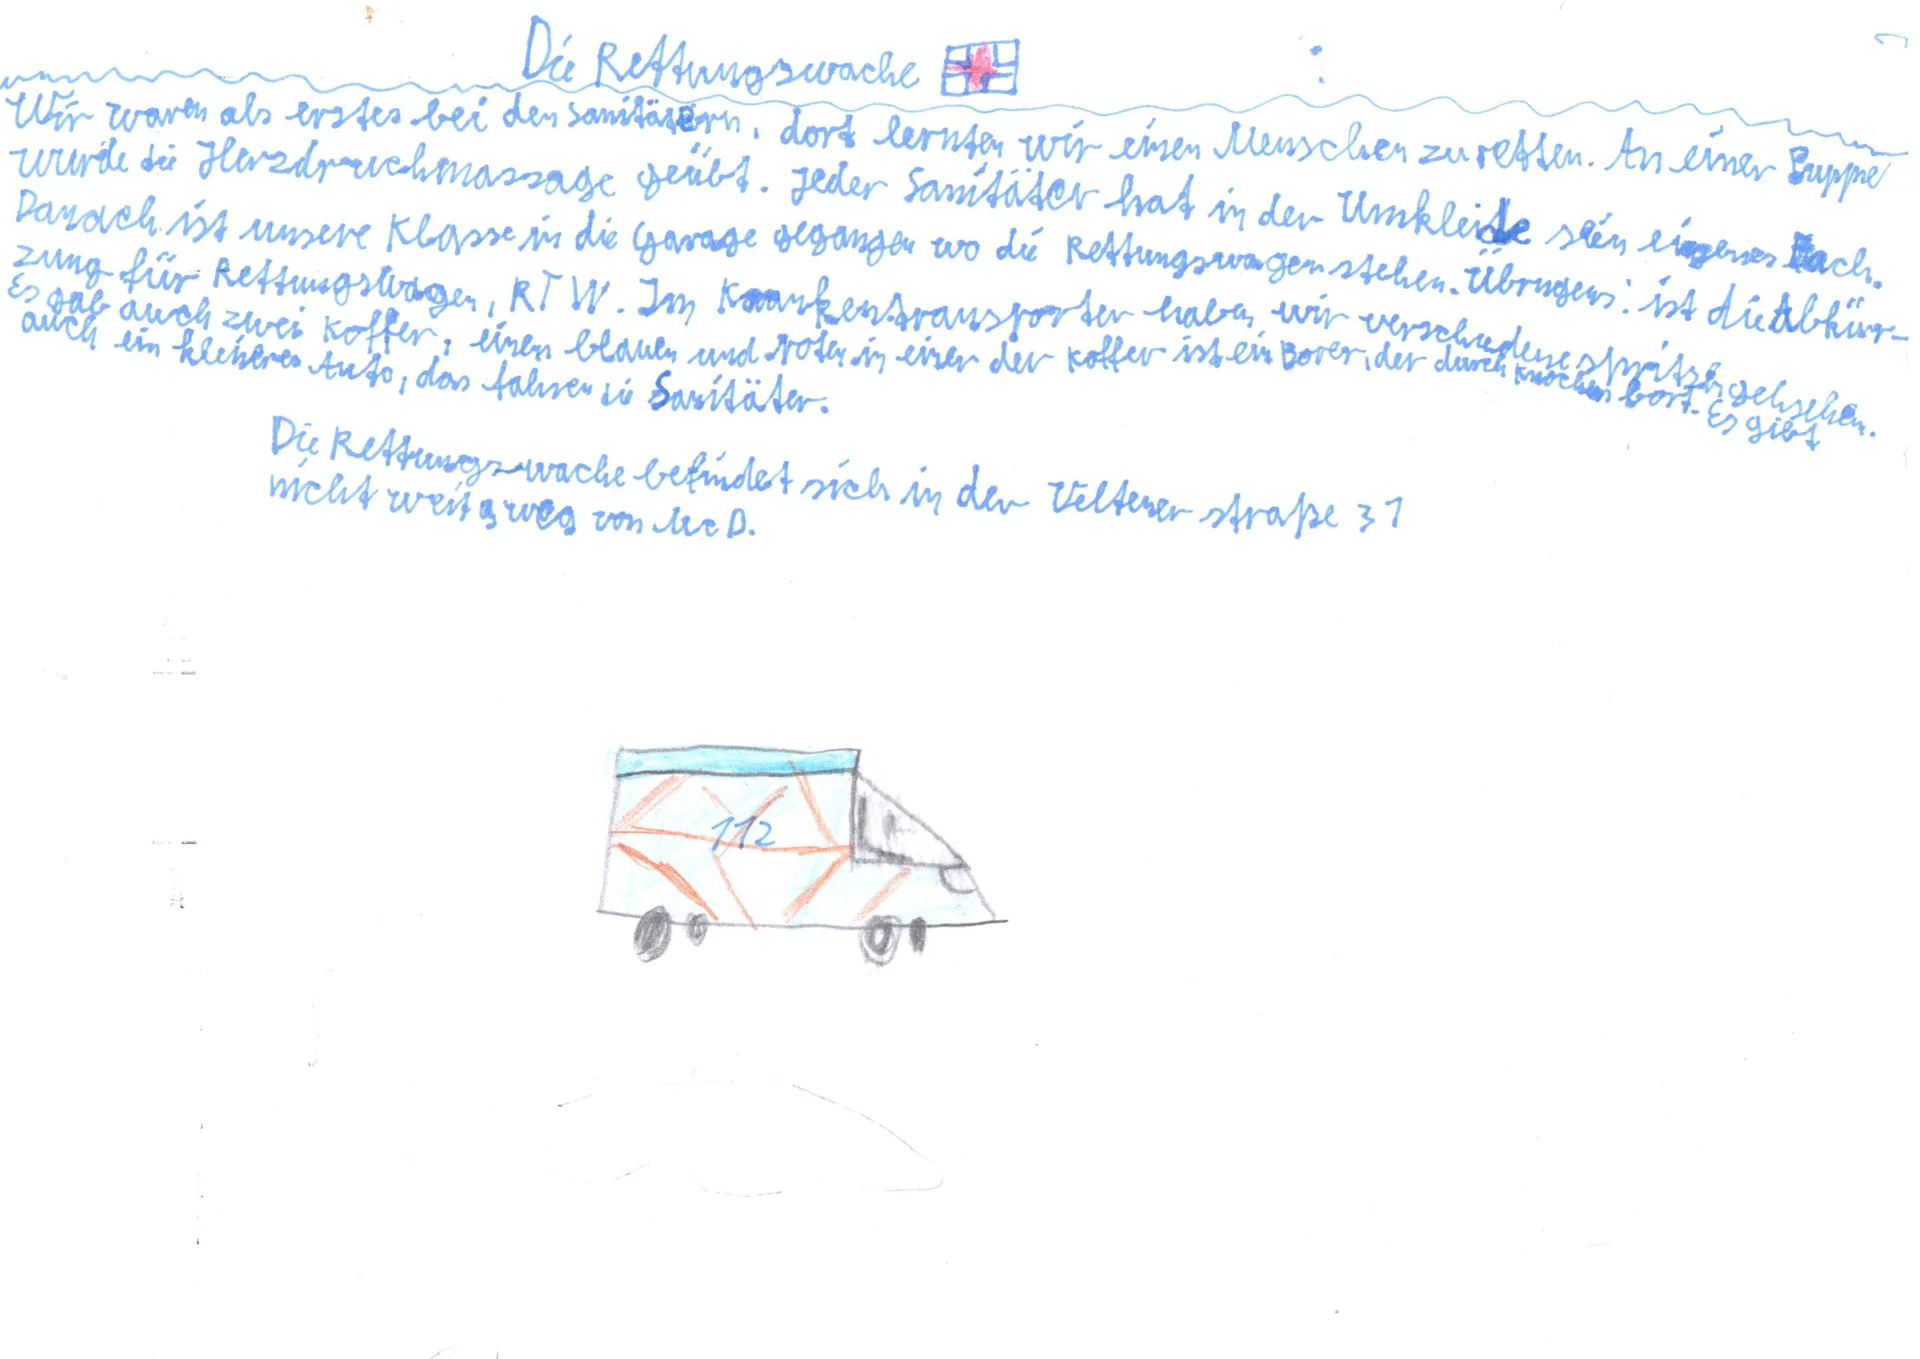 Die Rettungswache
Wir waren als erstes bei den Sanitätern, dort lernten wir einen Menschen zu retten. An einer Puppe
wurde die Herzdruchmassage geübt. Jeder Sanitäter hat in der Umkleide sein eigenes Fach.
Danach ist unsere Klasse in die Garage gegangen wo die Rettungswagen stehen. Übrigens: ist die Abkür-
zung für Rettungswagen, RTW. Im Krankentransporter haben wir verschiedene spritzen gehsehen.
Es gab auch zwei Koffer, einen blauen und roten in einer der Koffer ist ein Borer, der durch Knochen bort. Es gibt
auch ein kleineres Auto, das fahren die Sanitäter.
Die Rettungswache befindet sich in der Veltener straße 31
nicht weit weg von Mc D.
112